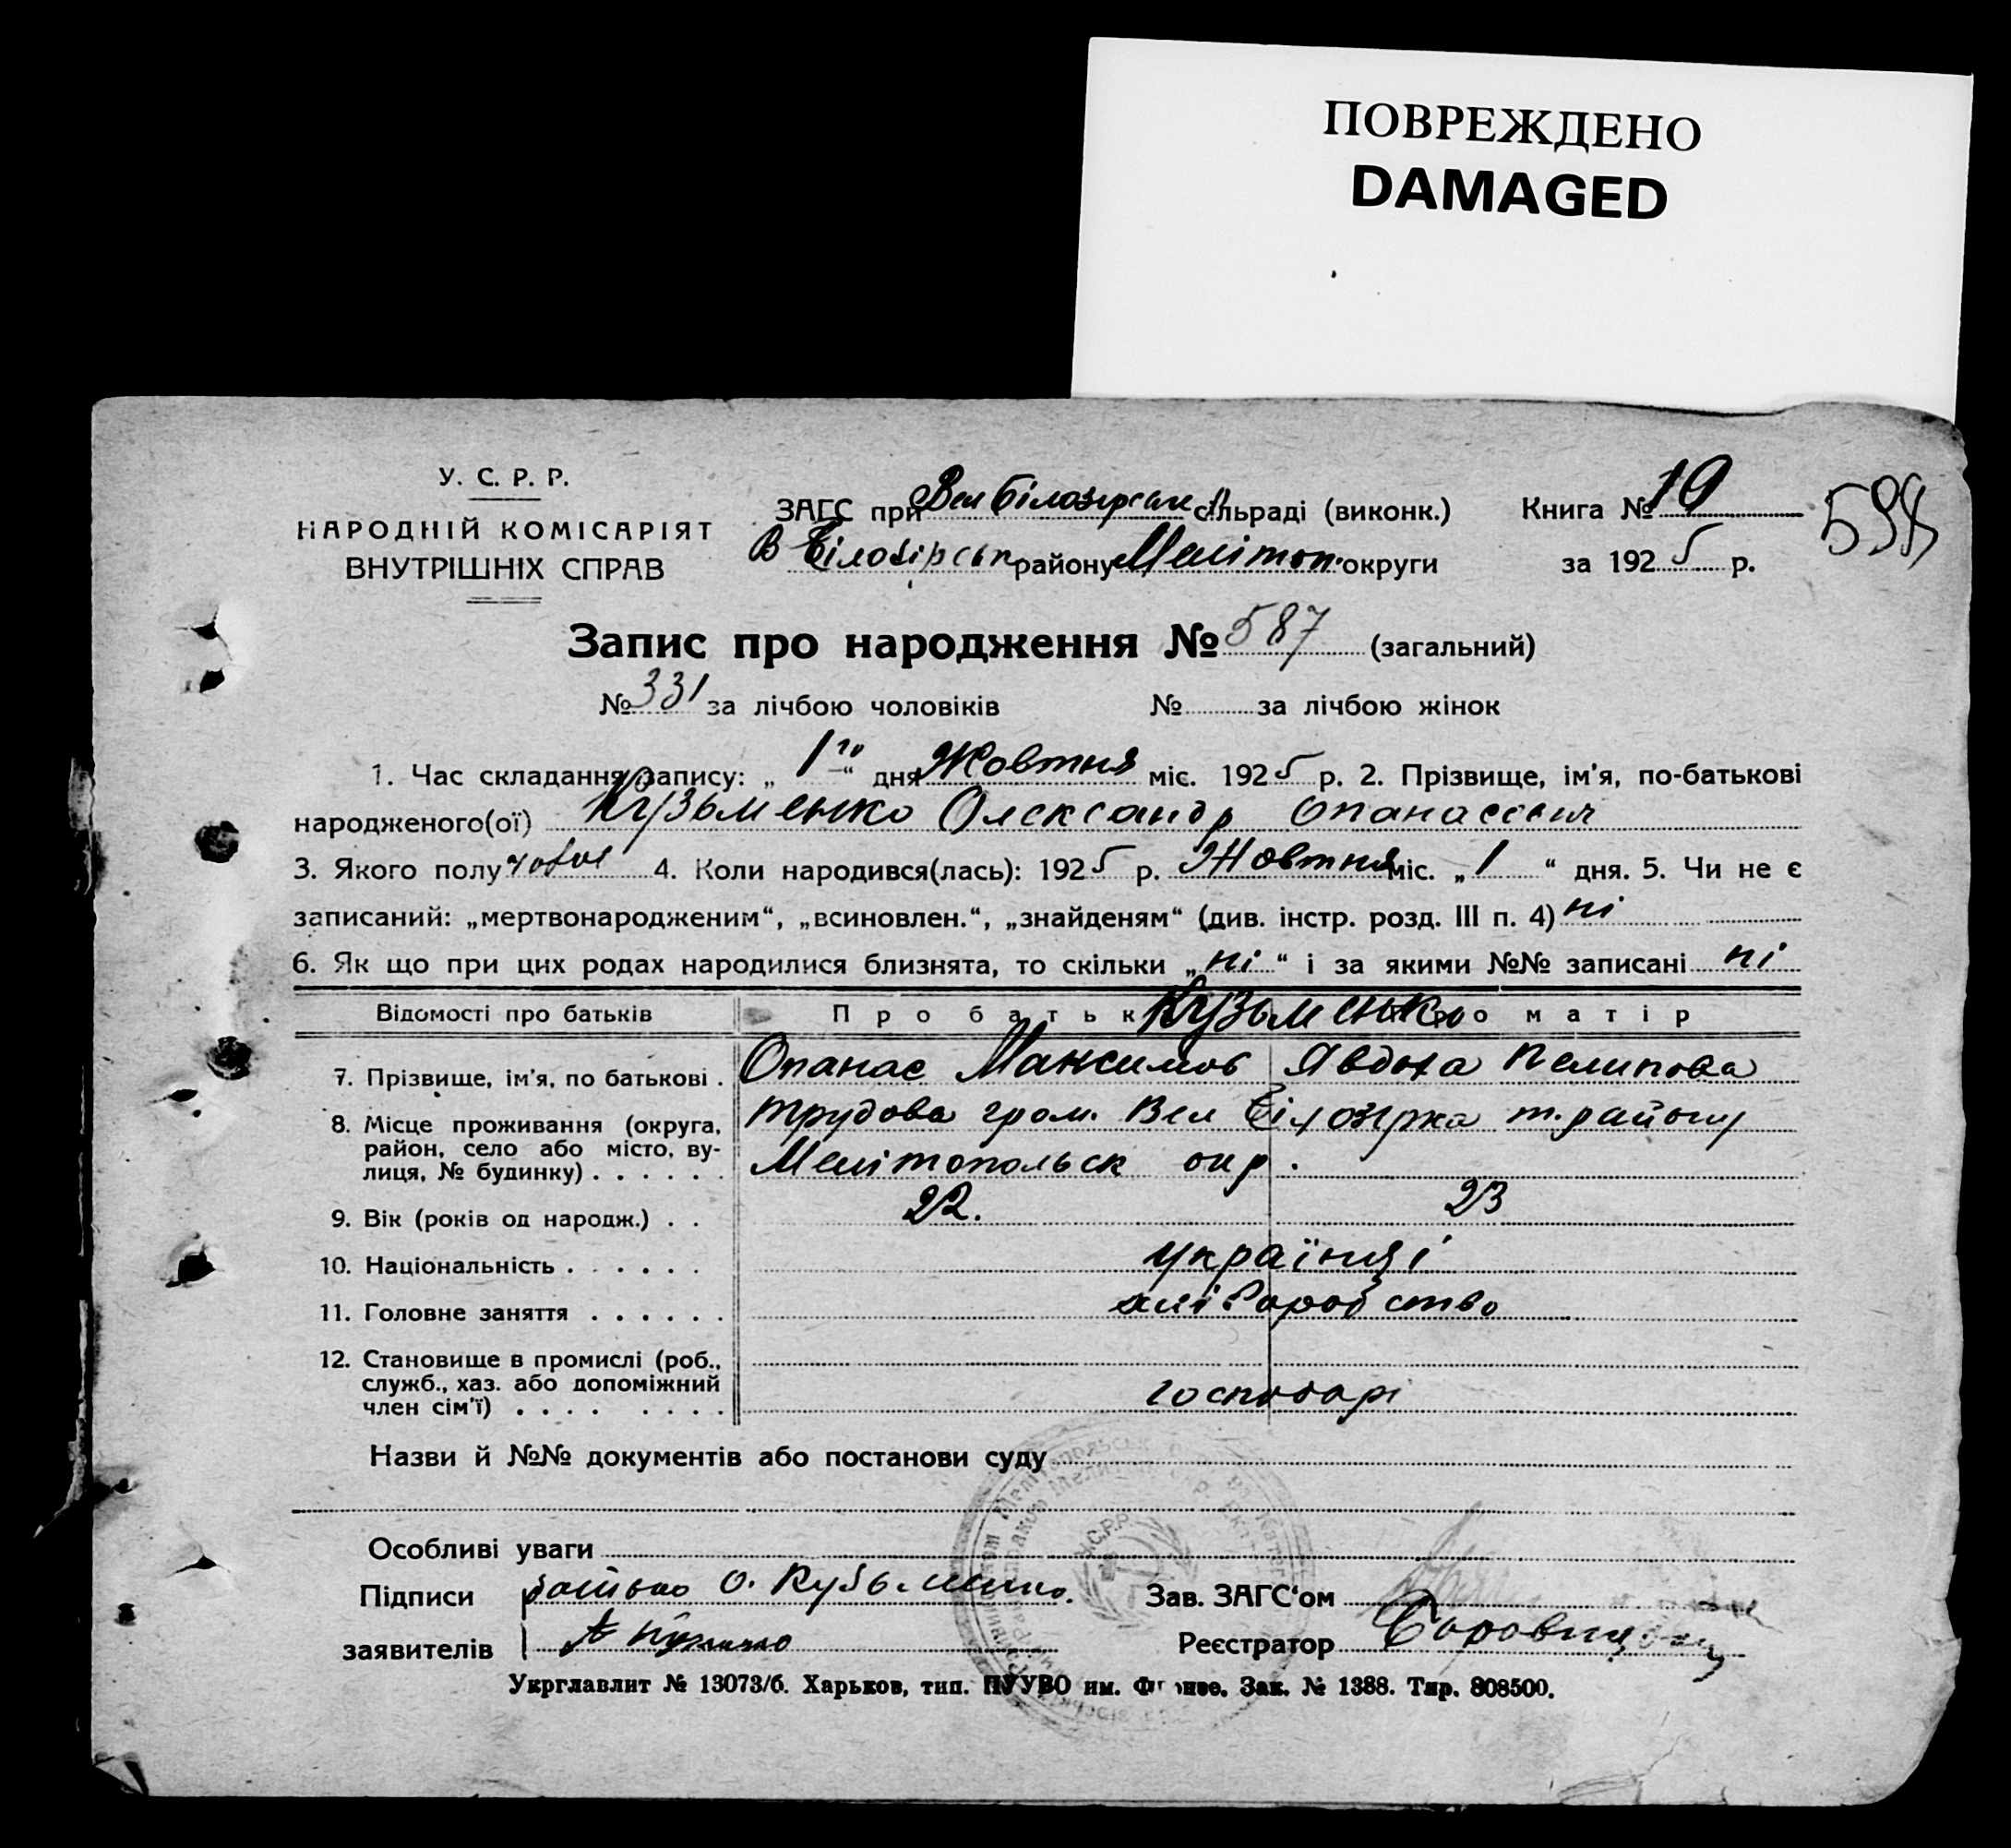 ПОВРЕЖДЕНО
DAMAGED
У. С. Р. Р.
НАРОДНІЙ КОМІСАРІЯТ
ВНУТРІШНІХ СПРАВ
ЗАГС при Вел Білозірськ сільраді (виконк.)
В Білозірськ району Мелітоп. округи
Книга № 19
за 1925 р.
Запис про народження № 587 (загальний)
№ 331 за лічбою чоловіків № за лічбою жінок
1. Час складання запису: „ 1го “ дня Жовтня міс. 1925 р. 2. Прізвище, ім'я, по-батькові
народженого(ої) Кузьменко Олександр Опанасович
3. Якого полу 4. Коли народився(лась): 1925 р. Жовтня міс. „ 1 “ дня. 5. Чи не є
записаний: „мертвонародженим“, „всиновлен.“, „знайденям“ (див. інстр. розд. III п. 4) ні
6. Як що при цих родах народилися близнята, то скільки „ ні “ і за якими №№ записані ні
Відомості про батьків Про батька Кузьменко Про матір
7. Прізвище, ім'я, по батькові . Опанас Максимов Явдоха Пелипова
8. Місце проживання (округа, район, село або місто, вулиця, № будинку) . . . . . . трудова гром. Вел Білозірка т. району
Мелітопольск окр.
9. Вік (років од народж.) . . 22. 23
10. Національність . . . . . . українці
11. Головне заняття . . . . . . хліборобство
12. Становище в промислі (роб., служб., хаз. або допоміжний член сім'ї) . . . . . . . . господарі
Назви й №№ документів або постанови суду
Особливі уваги
Підписи батько О. Кузьменко. Зав. ЗАГС'ом
заявителів Реєстратор
Укрглавлит № 13073/б. Харьков, тип. ПУУВО им. Фрунзе. Зак. № 1388. Тир. 808500.